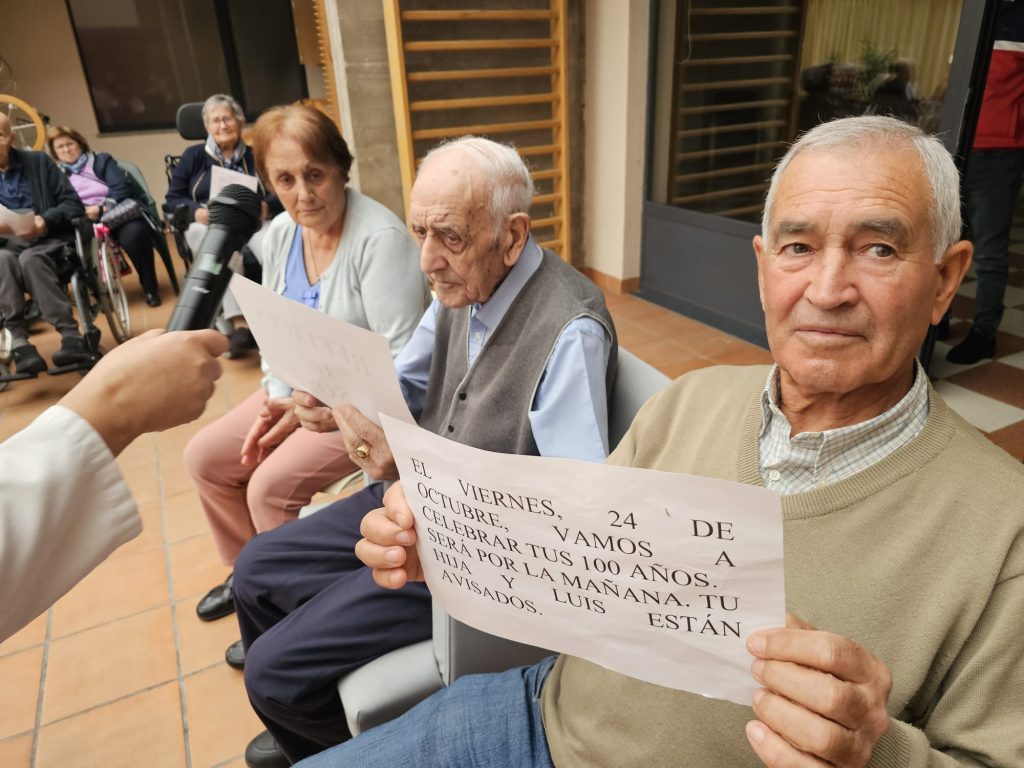 EL VIERNES, 24 DE
OCTUBRE, VAMOS A
CELEBRAR TUS 100 AÑOS.
SERÁ POR LA MAÑANA. TU
HIJA Y LUIS ESTÁN
AVISADOS.